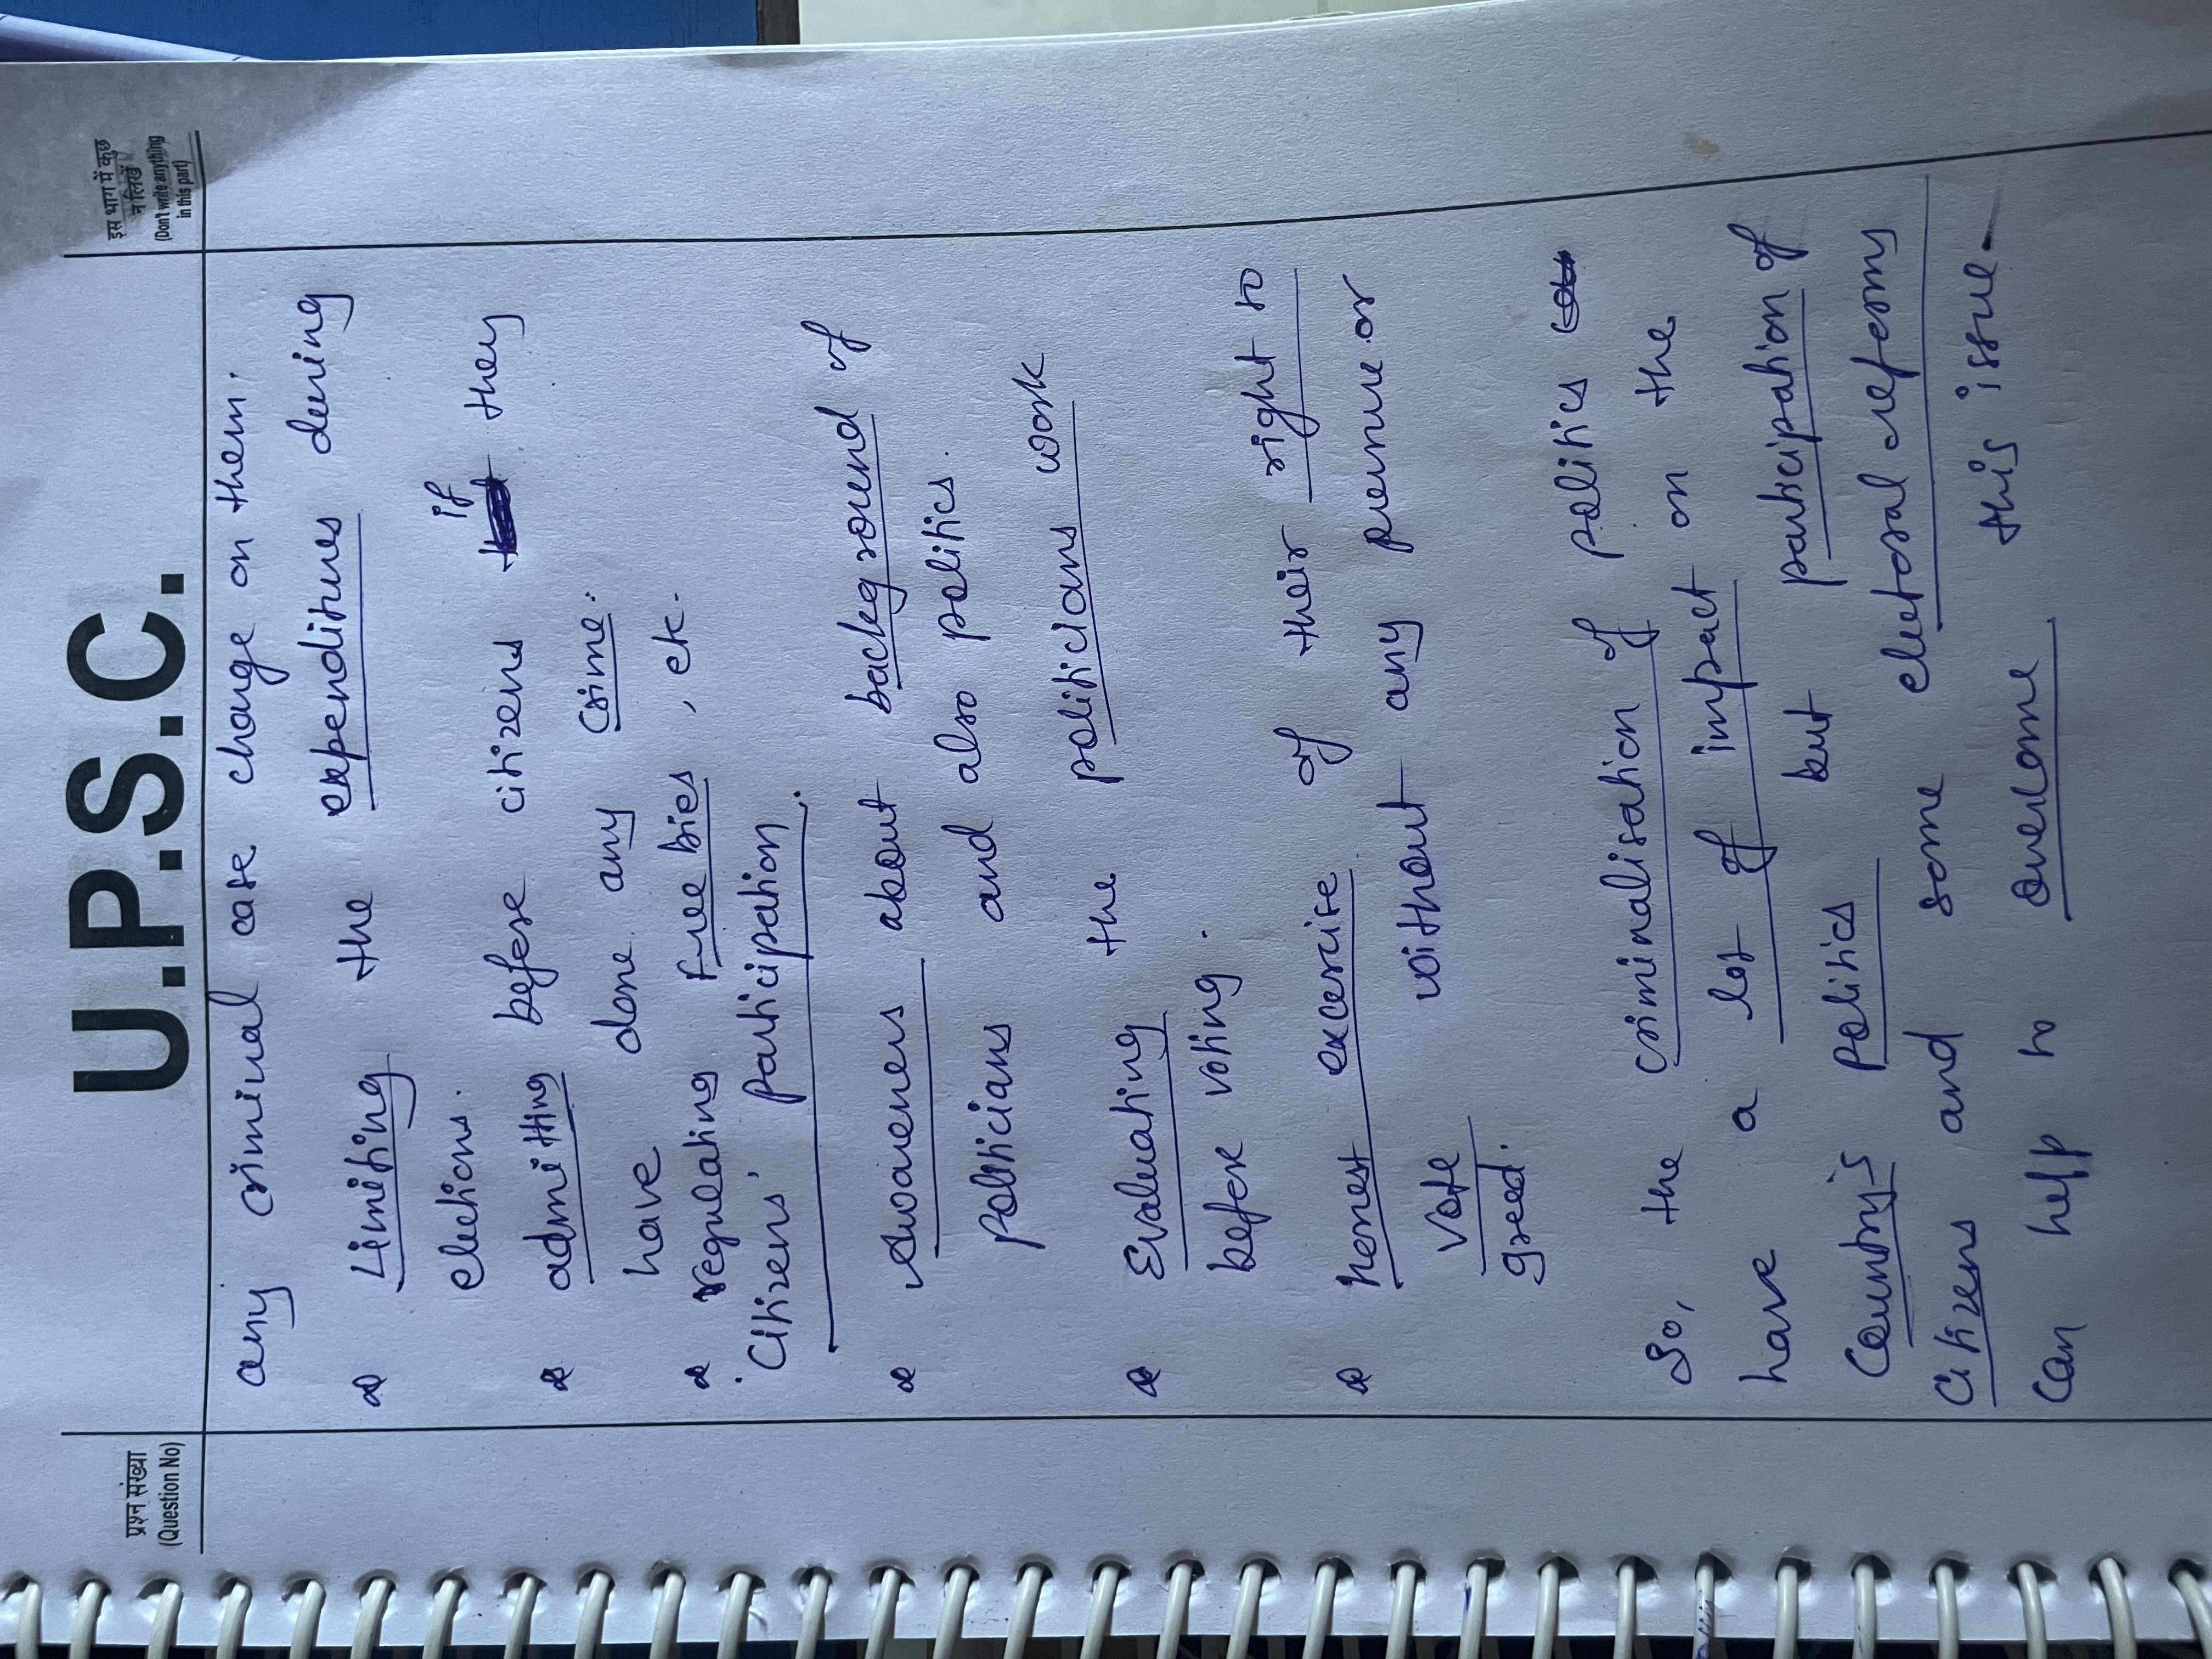 U.P.S.C.
प्रश्न संख्या
(Question No)
इस भाग में कुछ
न लिखें
(Don't write anything
in this part)
any criminal case charge on them.
Limiting the expenditures during
elections.
admitting before citizens if they
have done any crime.
regulating Freebies, etc.
Citizens' participation.
Awareness about background of
politicians and also politics.
Evaluating the politicians work
before voting.
honest exercise of their right to
vote without any pressure or
greed.
So, the criminalisation of politics
have a lot of impact on the
Country's politics but participation of
Citizens and some electoral reforms
can help to overcome this issue